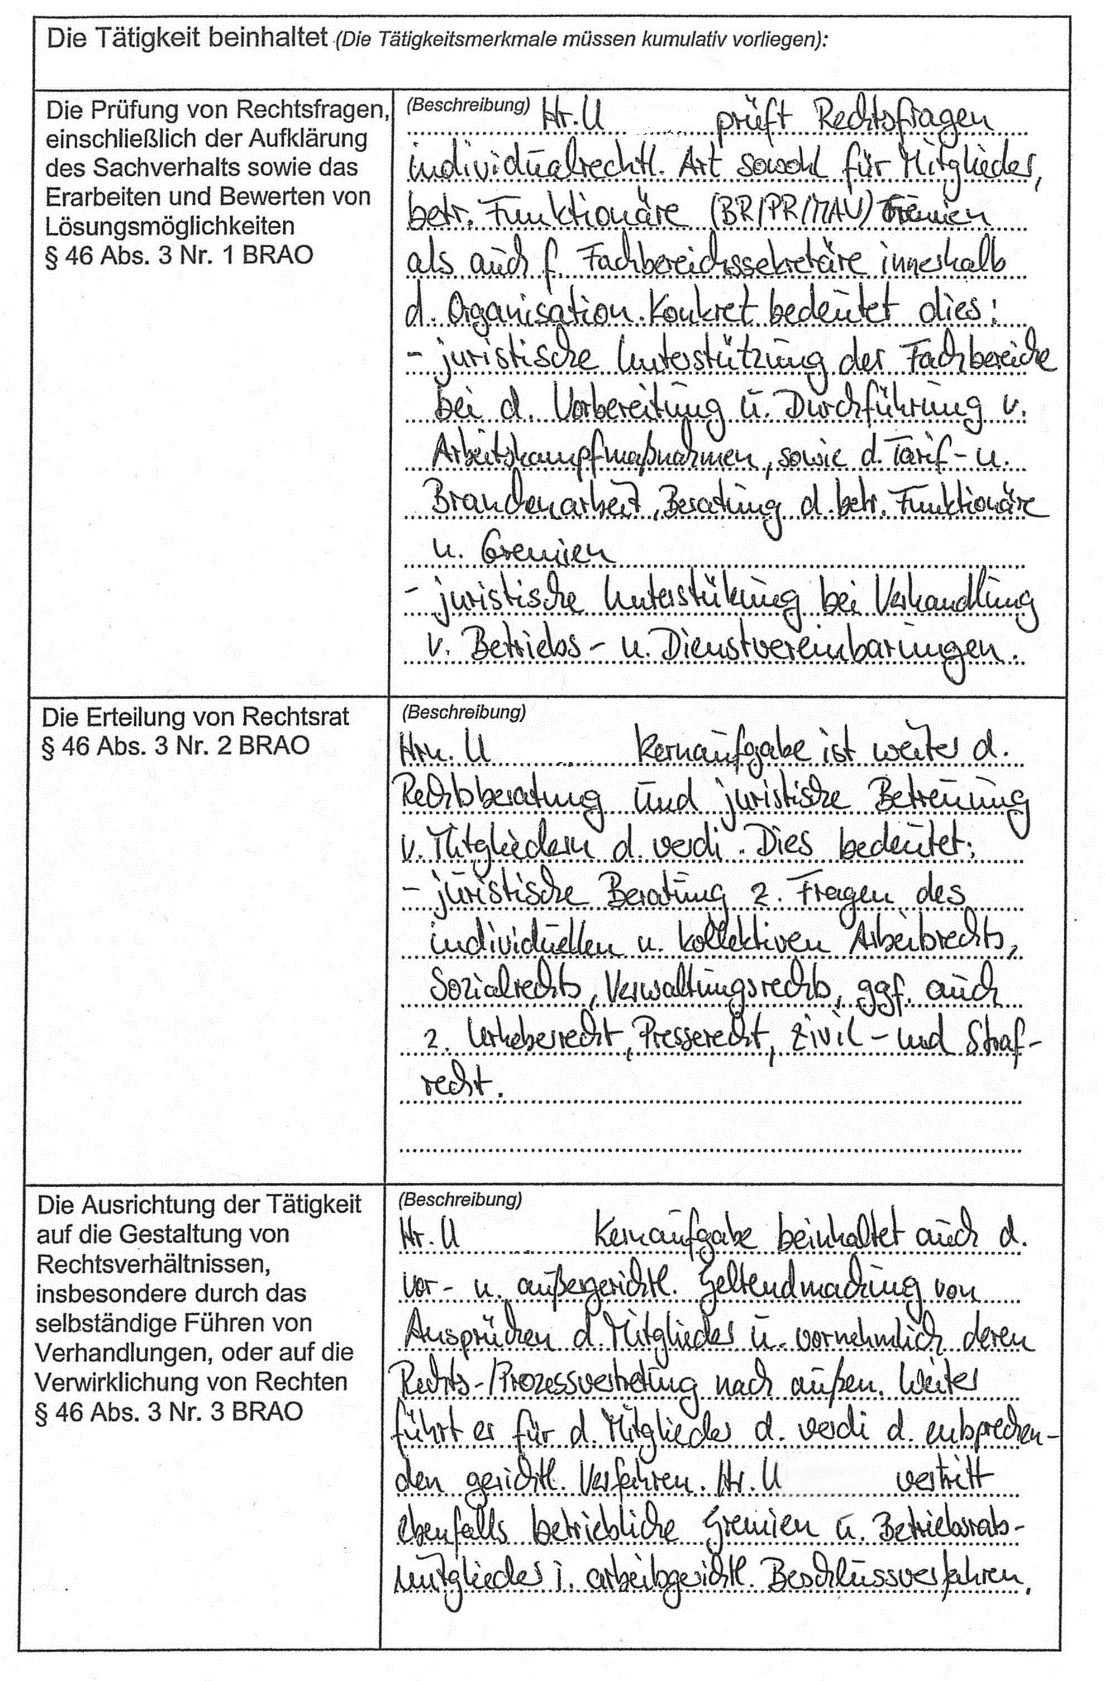 Die Tätigkeit beinhaltet (Die Tätigkeitsmerkmale müssen kumulativ vorliegen):
Die Prüfung von Rechtsfragen,
einschließlich der Aufklärung
des Sachverhalts sowie das
Erarbeiten und Bewerten von
Lösungsmöglichkeiten
§ 46 Abs. 3 Nr. 1 BRAO
(Beschreibung) Hr. U prüft Rechtsfragen
individualrechtl. Art sowohl für Mitglieder,
betr. Funktionäre (BR/PR/MAV) Gremien
als auch f. Fachbereichssekretäre innerhalb
d. Organisation. Konkret bedeutet dies:
- juristische Unterstützung der Fachbereiche
bei d. Vorbereitung u. Durchführung v.
Arbeitskampfmaßnahmen, sowie d. Tarif- u.
Branchenarbeit, Beratung d. betr. Funktionäre
u. Gremien
- juristische Unterstützung bei Verhandlung
v. Betriebs- u. Dienstvereinbarungen.
Die Erteilung von Rechtsrat
§ 46 Abs. 3 Nr. 2 BRAO
(Beschreibung)
Hrn. U Kernaufgabe ist weiter d.
Rechtsberatung und juristische Betreuung
v. Mitgliedern d. verdi. Dies bedeutet:
- juristische Beratung z. Fragen des
individuellen u. kollektiven Arbeitsrechts,
Sozialrechts, Verwaltungsrechts, ggf. auch
z. Urheberrecht, Presserecht, Zivil- und Straf-
recht.
Die Ausrichtung der Tätigkeit
auf die Gestaltung von
Rechtsverhältnissen,
insbesondere durch das
selbständige Führen von
Verhandlungen, oder auf die
Verwirklichung von Rechten
§ 46 Abs. 3 Nr. 3 BRAO
(Beschreibung)
Hr. U Kernaufgabe beinhaltet auch d.
vor- u. außergerichtl. Geltendmachung von
Ansprüchen d. Mitglieder u. vornehmlich deren
Rechts-/Prozessvertretung nach außen. Weiter
führt er für d. Mitglieder d. verdi d. entsprechen-
den gerichtl. Verfahren. Hr. U vertritt
ebenfalls betriebliche Gremien u. Betriebsrats-
mitglieder i. arbeitsgerichtl. Beschlussverfahren.